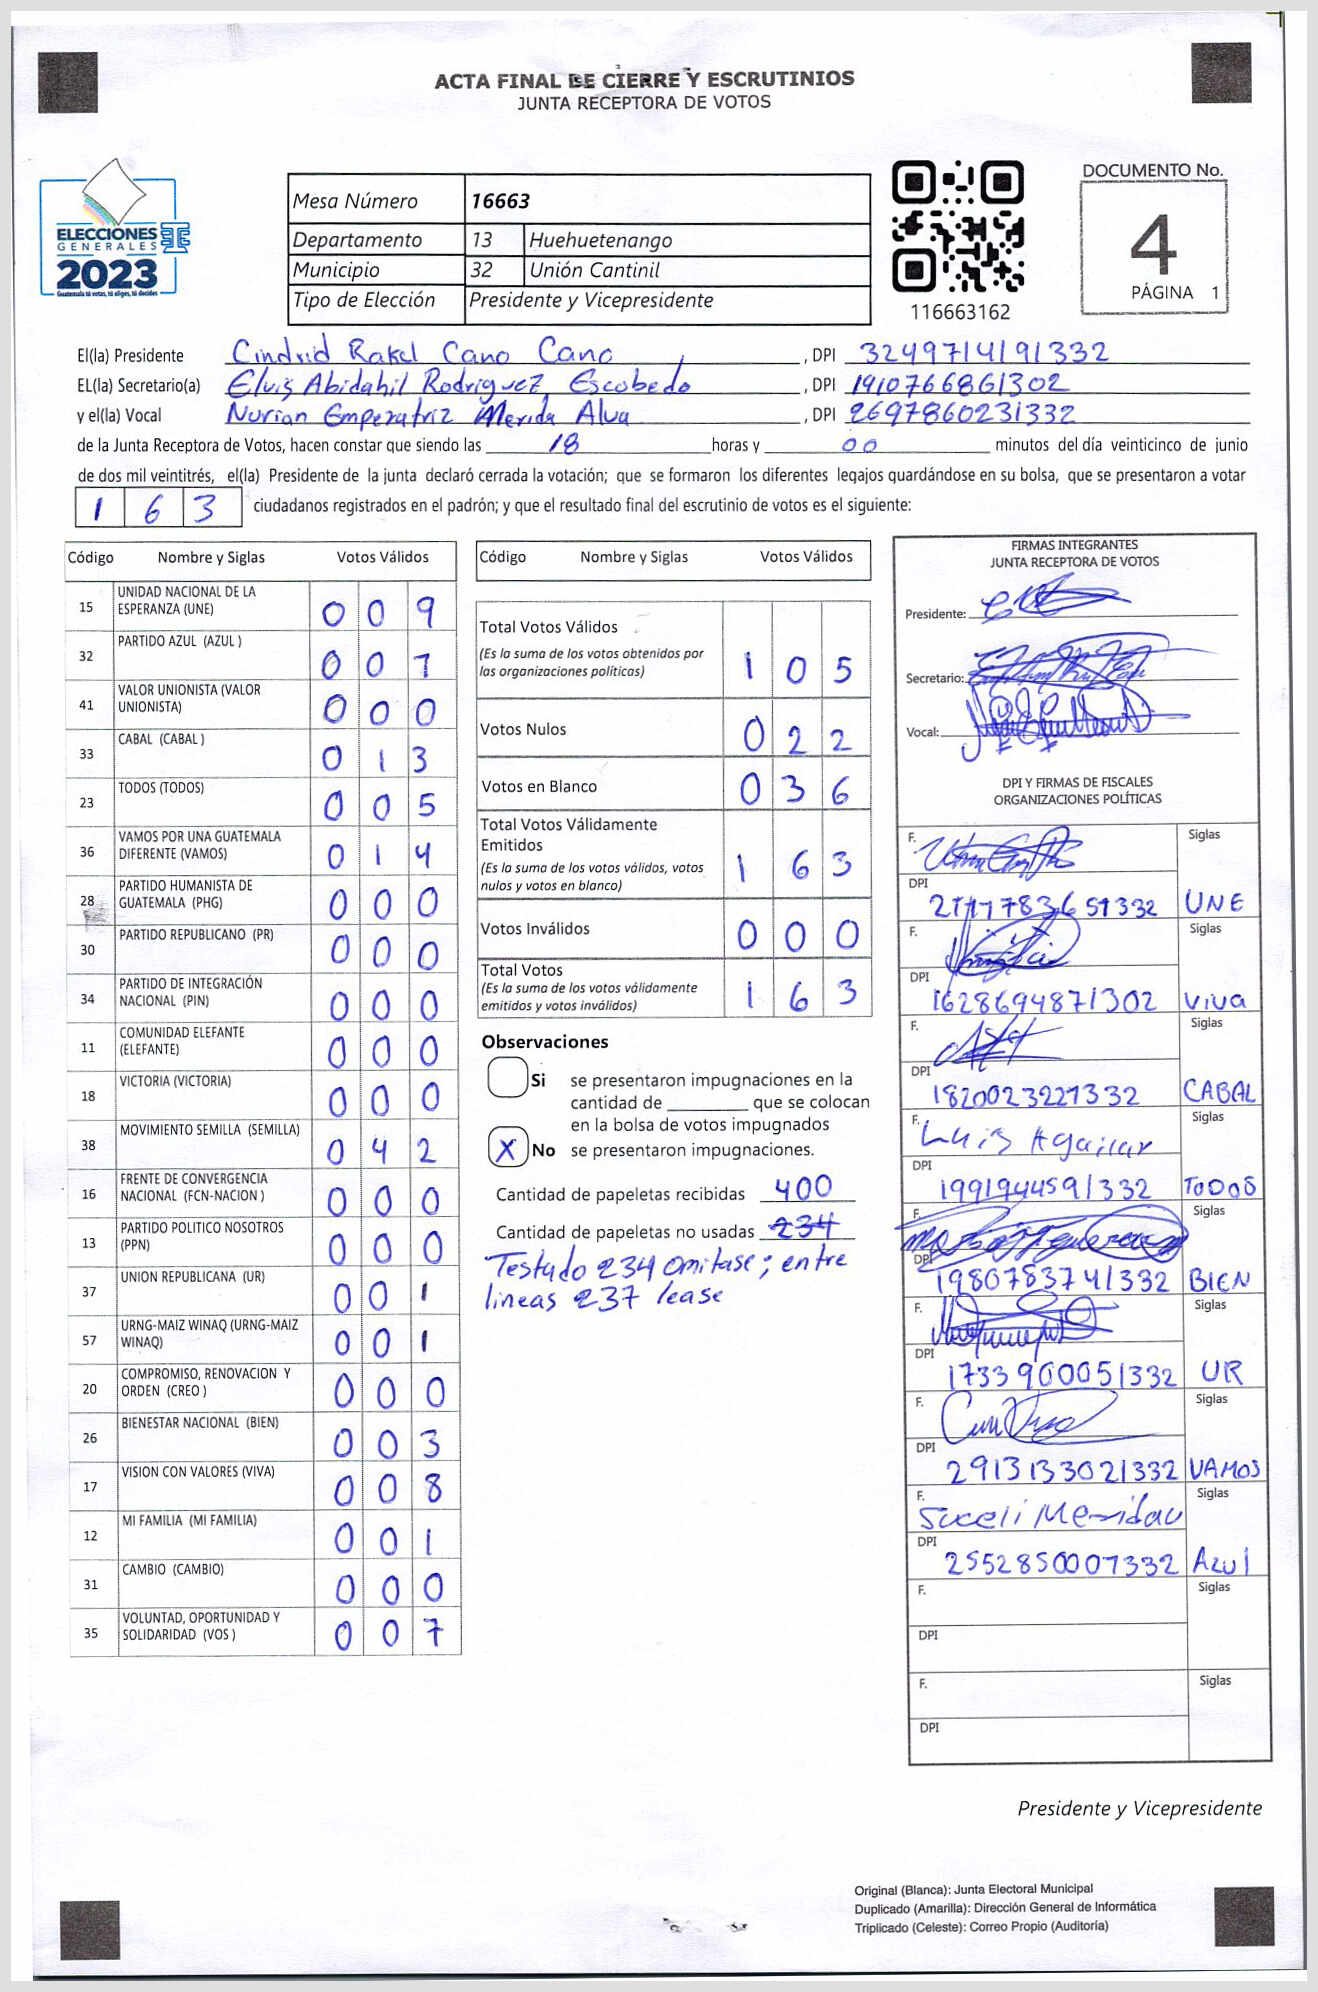 ACTA FINAL DE CIERRE Y ESCRUTINIOS
JUNTA RECEPTORA DE VOTOS
ELECCIONES
GENERALES
2023
Guatemala tú votas, tú eliges, tú decides
Mesa Número 16663
Departamento 13 Huehuetenango
Municipio 32 Unión Cantinil
Tipo de Elección Presidente y Vicepresidente
116663162
DOCUMENTO No.
4
PÁGINA 1
El(la) Presidente Cindrid Rakel Cano Cano , DPI 3249714191332
EL(la) Secretario(a) Elvis Abidahil Rodriguez Escobedo , DPI 1910766861302
y el(la) Vocal Nurian Emperatriz Merida Alva , DPI 2697860231332
de la Junta Receptora de Votos, hacen constar que siendo las 18 horas y 00 minutos del día veinticinco de junio
de dos mil veintitrés, el(la) Presidente de la junta declaró cerrada la votación; que se formaron los diferentes legajos guardándose en su bolsa, que se presentaron a votar
1 6 3 ciudadanos registrados en el padrón; y que el resultado final del escrutinio de votos es el siguiente:
Código Nombre y Siglas Votos Válidos
15 UNIDAD NACIONAL DE LA ESPERANZA (UNE) 0 0 9
32 PARTIDO AZUL (AZUL ) 0 0 1
41 VALOR UNIONISTA (VALOR UNIONISTA) 0 0 0
33 CABAL (CABAL ) 0 1 3
23 TODOS (TODOS) 0 0 5
36 VAMOS POR UNA GUATEMALA DIFERENTE (VAMOS) 0 1 4
28 PARTIDO HUMANISTA DE GUATEMALA (PHG) 0 0 0
30 PARTIDO REPUBLICANO (PR) 0 0 0
34 PARTIDO DE INTEGRACIÓN NACIONAL (PIN) 0 0 0
11 COMUNIDAD ELEFANTE (ELEFANTE) 0 0 0
18 VICTORIA (VICTORIA) 0 0 0
38 MOVIMIENTO SEMILLA (SEMILLA) 0 4 2
16 FRENTE DE CONVERGENCIA NACIONAL (FCN-NACION ) 0 0 0
13 PARTIDO POLITICO NOSOTROS (PPN) 0 0 0
37 UNION REPUBLICANA (UR) 0 0 1
57 URNG-MAIZ WINAQ (URNG-MAIZ WINAQ) 0 0 1
20 COMPROMISO, RENOVACION Y ORDEN (CREO ) 0 0 0
26 BIENESTAR NACIONAL (BIEN) 0 0 3
17 VISION CON VALORES (VIVA) 0 0 8
12 MI FAMILIA (MI FAMILIA) 0 0 1
31 CAMBIO (CAMBIO) 0 0 0
35 VOLUNTAD, OPORTUNIDAD Y SOLIDARIDAD (VOS ) 0 0 7
Código Nombre y Siglas Votos Válidos
Total Votos Válidos 1 0 5
(Es la suma de los votos obtenidos por
las organizaciones políticas)
Votos Nulos 0 2 2
Votos en Blanco 0 3 6
Total Votos Válidamente
Emitidos 1 6 3
(Es la suma de los votos válidos, votos
nulos y votos en blanco)
Votos Inválidos 0 0 0
Total Votos 1 6 3
(Es la suma de los votos válidamente
emitidos y votos inválidos)
Observaciones
Si se presentaron impugnaciones en la
cantidad de que se colocan
en la bolsa de votos impugnados
X No se presentaron impugnaciones.
Cantidad de papeletas recibidas 400
Cantidad de papeletas no usadas 234
Testado 234 omitase; entre
lineas 237 lease
FIRMAS INTEGRANTES
JUNTA RECEPTORA DE VOTOS
Presidente:
Secretario:
Vocal:
DPI Y FIRMAS DE FISCALES
ORGANIZACIONES POLÍTICAS
F. Siglas
DPI UNE
F. Siglas
DPI 1628694871302 Viva
F. Siglas
DPI 1820023221332 CABAL
F. Luis Aguilar Siglas
DPI 1991944591332 TODOS
F. Siglas
DPI 1980783741332 BIEN
F. Siglas
DPI 1733900051332 UR
F. Siglas
DPI 2913133021332 VAMOS
F. Suceli Siglas
DPI 2552850007332 Azul
F. Siglas
DPI
F. Siglas
DPI
Presidente y Vicepresidente
Original (Blanca): Junta Electoral Municipal
Duplicado (Amarilla): Dirección General de Informática
Triplicado (Celeste): Correo Propio (Auditoría)